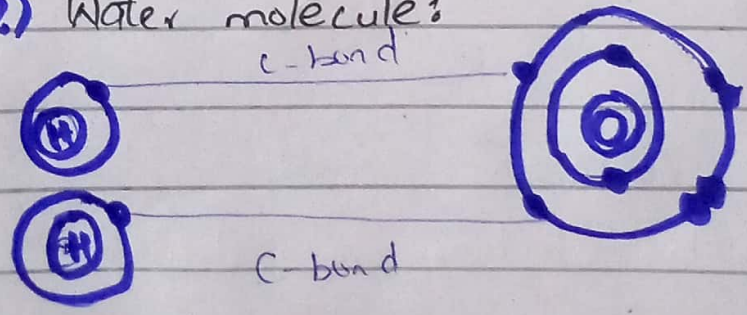 2.) Water molecule:
C-bond
H
O
H
C-bond